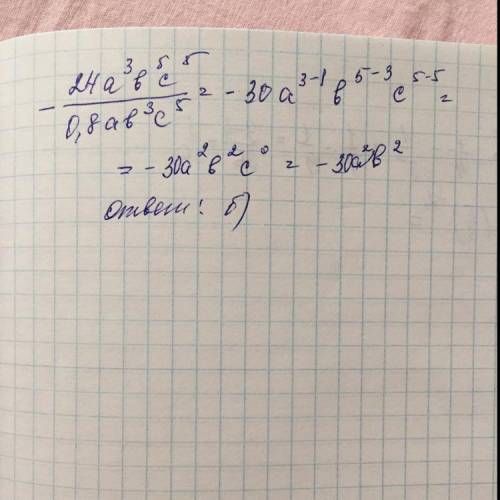 - 24a³в⁵c⁵ / 0,8aв³c⁵ = - 30a³⁻¹в⁵⁻³c⁵⁻⁵ =
= - 30a²в²c⁰ = - 30a²в²
ответ: б)